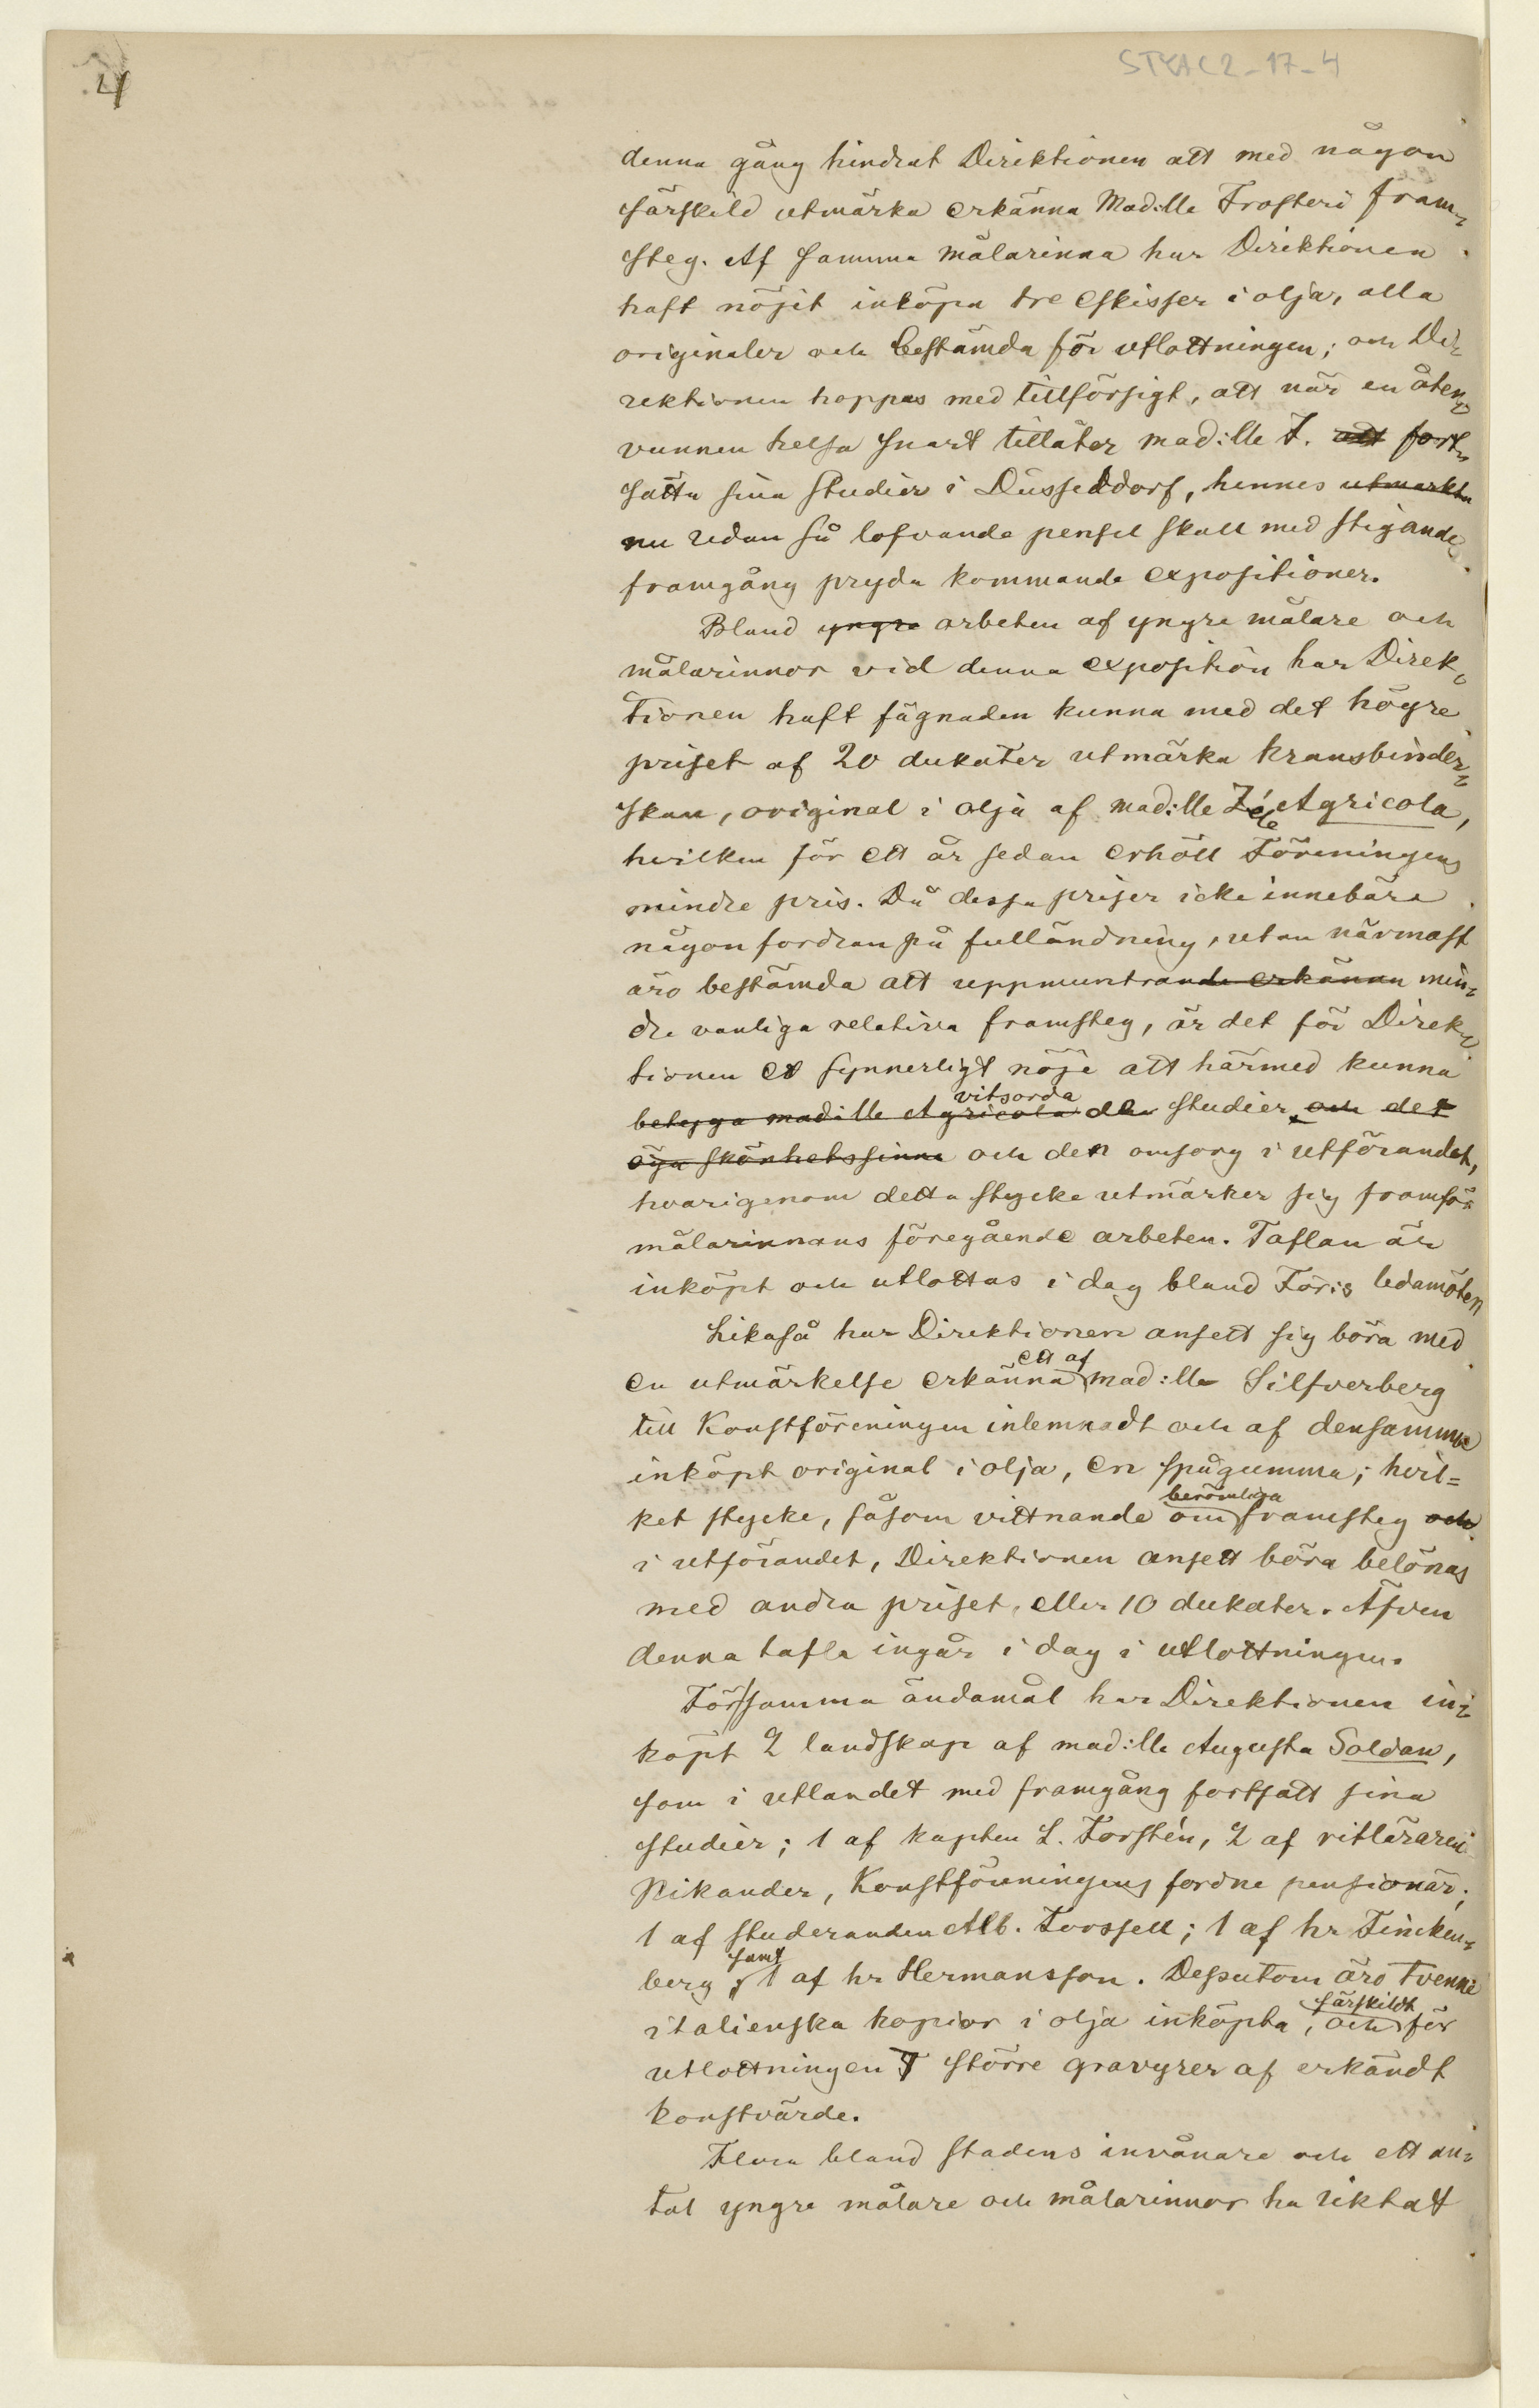 STYAC2-17-4
4
denna gång hindrat Direktionen att med någon
särskild utmärka erkänna Mad:lle Frosteri fram-
steg. Af samma målarinna har Direktionen
haft nöjet inköpa tre eskisser i olja, alla
originaler och bestämda för utlottningen; och Di-
rektionen hoppas med tillförsigt, att när en åter-
vunnen helsa snart tillåter mad:lle F. att fort-
sätta sina studier i Düsseldorf, hennes utmärkta
nu redan så lofvande pensel skall med stigande
framgång pryda kommande expositioner.
Bland yngre arbeten af yngre målare och
målarinnor vid denna exposition har Direk-
tionen haft fägnaden kunna med det högre
priset af 20 dukater utmärka kransbinder-
skan, original i olja af mad:lle Agricola,
hvilken för ett år sedan erhöll Föreningens
mindre pris. Då dessa priser icke innebära
någon fordran på fulländning, utan närmast
äro bestämda att uppmuntrande erkänna min-
dre vanliga relativa framsteg, är det för Direk-
tionen ett synnerligt nöje att härmed kunna
vitsorda
betyga mad:lle Agricola de studier och det
öga skönhetssinne och den omsorg i utförandet,
hvarigenom detta stycke utmärker sig framför
målarinnans föregående arbeten. Taflan är
inköpt och utlottas i dag bland För:s ledamöter
Likaså har Direktionen ansett sig böra med
ett af
en utmärkelse erkänna mad:lle Silfverberg
till Konstföreningen inlemnadt och af densamma
inköpt original i olja, en spågumma; hvil=
berömliga
ket stycke, såsom vittnande om framsteg och
i utförandet, Direktionen ansett böra belönas
med andra priset, eller 10 dukater. Äfven
denna tafla ingår i dag i utlottningen.
För samma ändamål har Direktionen in-
köpt 2 landskap af mad:lle Augusta Soldan,
som i utlandet med framgång fortsatt sina
studier; 1 af kapten L. Forstén, 2 af ritläraren
Nikander, Konstföreningens fordne pensionär;
1 af studeranden Alb. Forssell; 1 af hr Fincken-
samt
berg, 1 af hr Hermansson. Dessutom äro tvenne
särskildt
italienska kopior i olja inköpta, och för
utlottningen 7 större gravyrer af erkändt
konstvärde.
Flera bland stadens invånare och ett an-
tal yngre målare och målarinnor ha riktat